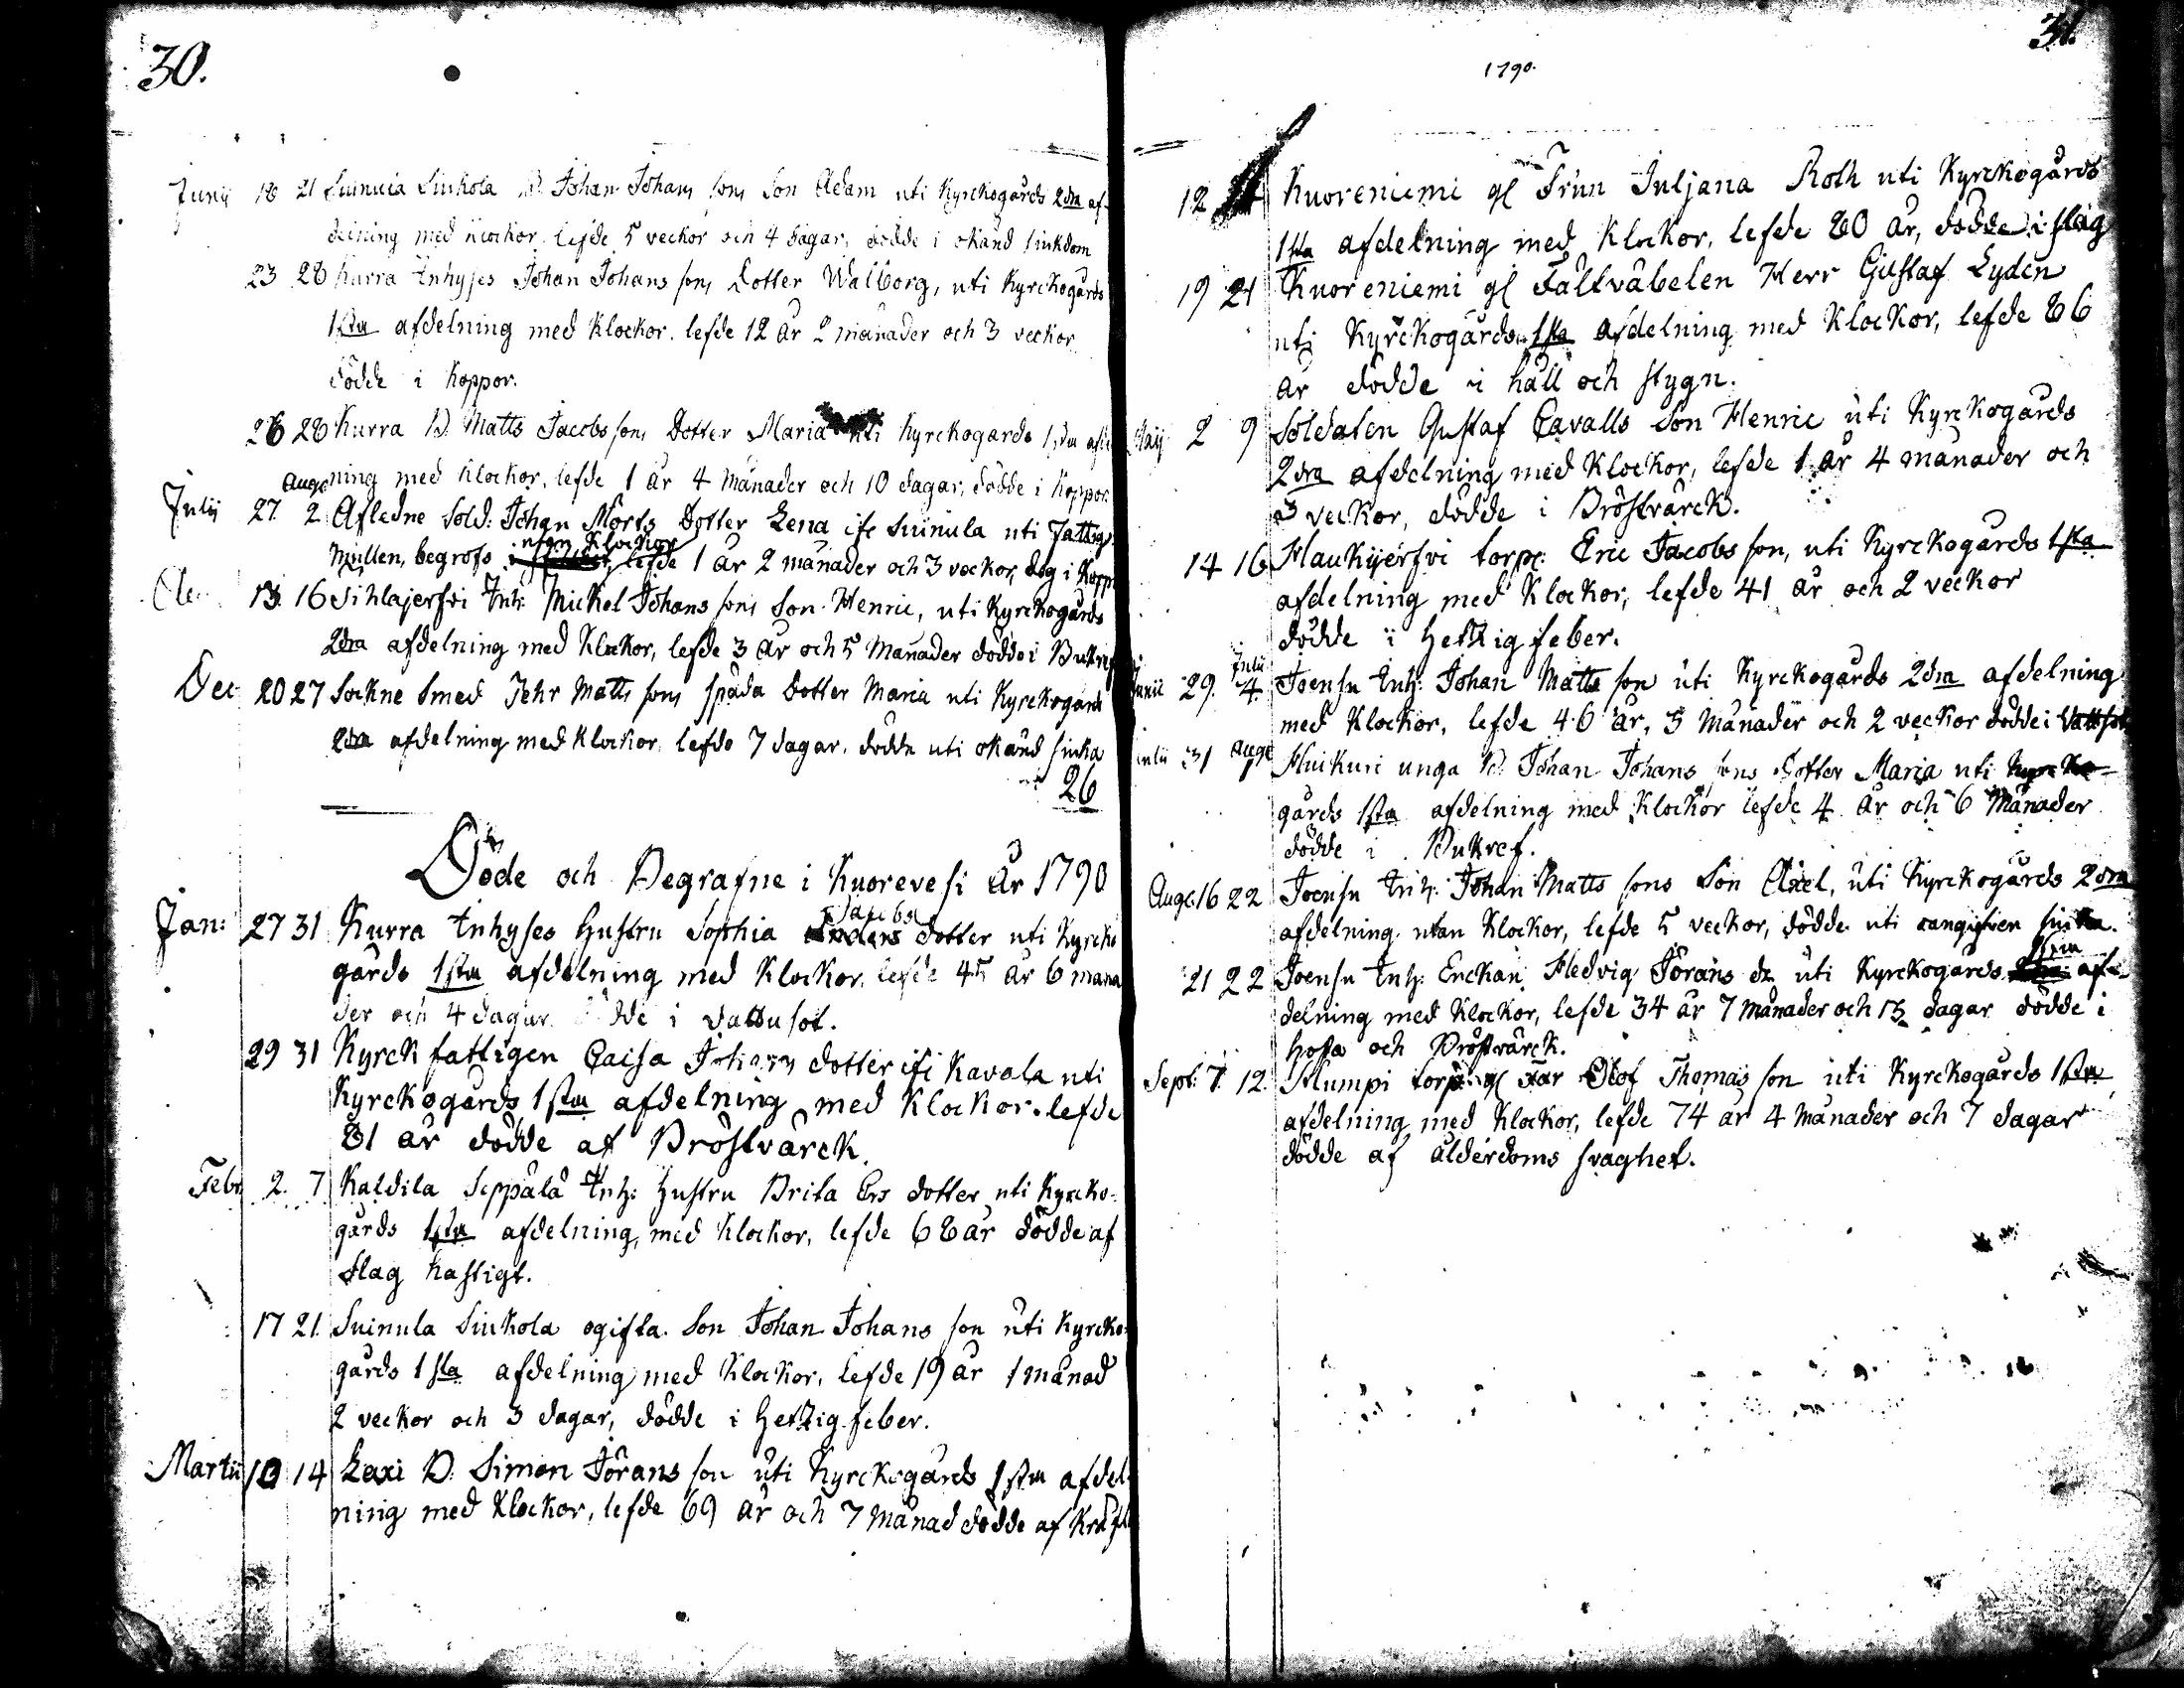 30.
Junij 18 21 Suinula Siukola B. Johan Johans sons Son Adam uti Kyrckogårds 2dra af-
delning med klockor. lefde 5 veckor och 4 dagar, dödde i okänd siukdom
23 28 Kurra Inhyses Johan Johans sons Dotter Walborg, uti Kyrckogårds
1sta afdelning med Klockor. lefde 12 år 2 månader och 3 veckor
dödde i Koppor.
26 28 Kurra B. Matts Jacobs sons Dotter Maria uti Kyrckogårds 1sta afdel
ning med Klockor, lefde 1 år 4 Månader och 10 dagar, dödde i Koppor
Julij 27. Aug: 2 Afledne Sold: Johan Mörts Dotter Lena ifr Suinula uti Fattig
Mullen, begrofs utan Klockor lefde 1 år 2 månader och 3 veckor, dog i Kopp
13. 16 Sihlajerfvi Inh: Mickel Johans sons Son Henric, uti Kyrckogårds
2dra afdelning med Klockor, lefde 3 år och 5 Månader dödde i Bukref
Dec 20 27 Sockne Smed Jehr Matts sons späda Dotter Maria uti Kyrckogård
2dra afdelning med Klockor, lefde 7 dagar. dödde uti okänd siuka
26
Döde och Begrafne i Kuorevesi År 1790
Jan: 27 31 Kurra Inhyses Hustru Sophia Anders Jacobs dotter uti Kyrcko
gårds 1sta afdelning med Klockor. lefde 45 år 6 måna
der och 4 dagar. dödde i vattusot.
29 31 Kyrck fattigen Caisa Johans dotter ifr Kavala uti
Kyrckogårds 1sta afdelning med Klockor. lefde
81 år dödde af Bröstvärck.
Febr 2. 7 Kaldila Seppälä Inh: Hustru Brita Ers dotter uti Kyrcko-
gårds 1sta afdelning, med Klockor, lefde 68 år dödde af
slag hastigt.
17 21. Suinula Siukola ogifta. Son Johan Johans son uti Kyrcko-
gårds 1sta afdelning med Klockor, lefde 19 år 1 månad
2 veckor och 3 dagar, dödde i Hetzig feber.
Martii 10 14 Laxi B. Simon Jörans son uti Kyrckogårds 1sta afdel-
ning med Klockor, lefde 69 år och 7 Månad dödde af
31.
1790.
12 Kuoreniemi gl Frun Juljana Roth uti Kyrckogårds
1sta afdelning med Klockor, lefde 80 år, dödde i slag
19 21 Kuoreniemi gl Fältväbelen Herr Gustaf Lyden
uti Kyrckogårds 1sta afdelning med Klockor, lefde 86
år dödde i håll och stygn.
Maij 2 9 Soldaten Gustaf Cavalls Son Henric uti Kyrckogårds
2dra afdelning med Klockor, lefde 1 år 4 månader och
3 veckor, dödde i Bröstvärck.
14 16 Haukijerfvi torp: Eric Jacobs son, uti Kyrckogårds 1sta
afdelning med Klockor, lefde 41 år och 2 veckor
dödde i Hettzig feber.
Junii 29. Julii 4. Joensu Inh: Johan Matts son uti Kyrckogårds 2dra afdelning
med Klockor, lefde 46 år, 3 Månader och 2 veckor dödde i Vattsot
Julii 31 Aug: 1 Huikuri unga B. Johan Johans sons dotter Maria uti Kyrcko-
gårds 1sta afdelning med Klockor lefde 4 år och 6 Månader
dödde i Bukref.
Aug: 16 22 Joensu Inh: Johan Matts sons Son Axel, uti Kyrckogårds 2dra
afdelning utan Klockor, lefde 5 veckor, dödde uti oangifven siuka.
21 22 Joensu Inh: Enckan Hedvig Jörans dr uti Kyrckogårds 1sta af-
delning med Klockor, lefde 34 år 7 Månader och 13 dagar dödde i
hosta och Bröstvärck.
Sept: 7. 12. Klumpi torp: gl Far Olof Thomas son uti Kyrckogårds 1sta
afdelning med Klockor, lefde 74 år 4 Månader och 7 dagar
dödde af ålderdoms svaghet.